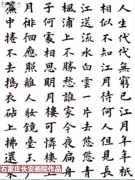 人生代代無窮已江月年年
相似不知江月待何人但見長
江送流水白雲一片去悠悠青
楓浦上不勝愁誰家今夜扁舟
子何處相思明月樓可憐樓上
月徘徊應照離人妝鏡臺玉戶
簾中捲不去搗衣砧上拂還來
石家庄长安画院作品